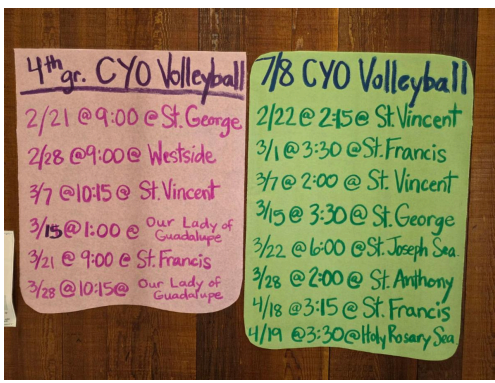 4th
gr. CYO Volleyball
2/21 @ 9:00 @ St. George
2/28 @ 9:00 @ Westside
3/7 @ 10:15 @ St. Vincent
3/15 @ 1:00 @ Our Lady of
Guadalupe
3/21 @ 9:00 @ St. Francis
3/28 @ 10:15 @ Our Lady of
Guadalupe
7/8 CYO Volleyball
2/22 @ 2:15 @ St Vincent
3/1 @ 3:30 @ St. Francis
3/7 @ 2:00 @ St. Vincent
3/15 @ 3:30 @ St. George
3/22 @ 6:00 @ St. Joseph Sea.
3/28 @ 2:00 @ St. Anthony
4/18 @ 3:15 @ St. Francis
4/19 @ 3:30 @ Holy Rosary Sea